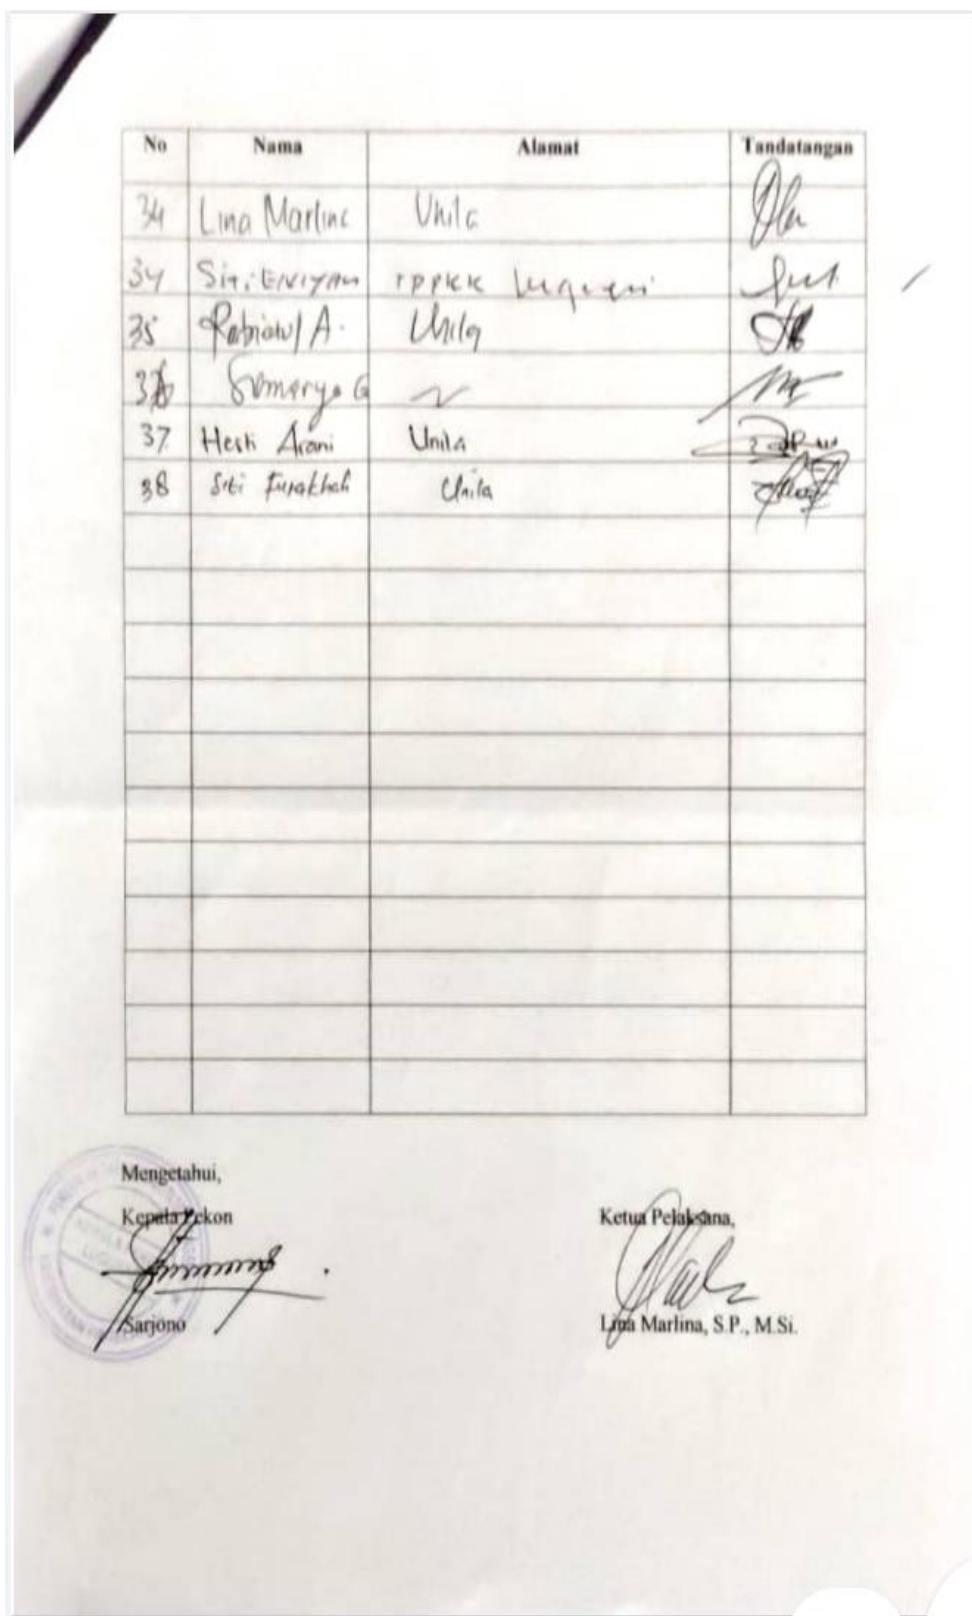 No Nama Alamat Tandatangan
34 Lina Marlina Unila
34 Siti Eniyan TPPKK Lugusari
35 Rabiatul A. Unila
Sumaryo G
37 Hesti Arani Unila
38 Siti Unila
Mengetahui,
Kepala Pekon Ketua Pelaksana,
Sarjono Lina Marlina, S.P., M.Si.